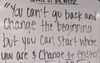 "You can't go back and
change the beginning
but you can start where
you are & change the ending